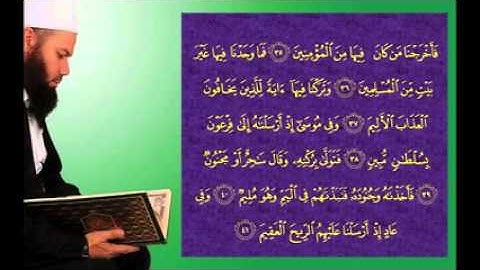 فَأَخْرَجْنَا مَن كَانَ فِيهَا مِنَ ٱلْمُؤْمِنِينَ ٣٥ فَمَا وَجَدْنَا فِيهَا غَيْرَ
بَيْتٍ مِّنَ ٱلْمُسْلِمِينَ ٣٦ وَتَرَكْنَا فِيهَآ ءَايَةً لِّلَّذِينَ يَخَافُونَ
ٱلْعَذَابَ ٱلْأَلِيمَ ٣٧ وَفِى مُوسَىٰٓ إِذْ أَرْسَلْنَـٰهُ إِلَىٰ فِرْعَوْنَ
بِسُلْطَـٰنٍ مُّبِينٍ ٣٨ فَتَوَلَّىٰ بِرُكْنِهِۦ وَقَالَ سَـٰحِرٌ أَوْ مَجْنُونٌ
٣٩ فَأَخَذْنَـٰهُ وَجُنُودَهُۥ فَنَبَذْنَـٰهُمْ فِى ٱلْيَمِّ وَهُوَ مُلِيمٌ ٤٠ وَفِى
عَادٍ إِذْ أَرْسَلْنَا عَلَيْهِمُ ٱلرِّيحَ ٱلْعَقِيمَ ٤١